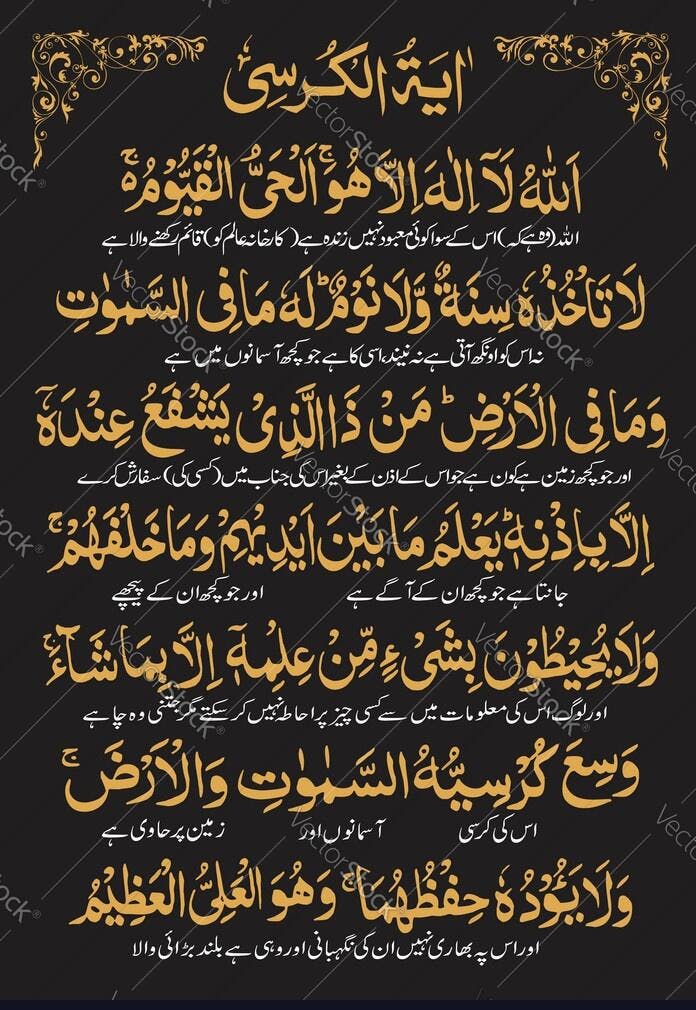 اٰیَةُ الْکُرْسِیْ
اَللّٰهُ لَاۤ اِلٰهَ اِلَّا هُوَۚ اَلْحَیُّ الْقَیُّوْمُ ۬ۚ
اللہ (وہ ہے کہ) اس کے سوا کوئی معبود نہیں زندہ ہے (کارخانہ عالم کو) قائم رکھنے والا ہے
لَا تَاْخُذُهٗ سِنَةٌ وَّلَا نَوْمٌؕ لَهٗ مَا فِی السَّمٰوٰتِ
نہ اس کو اونگھ آتی ہے نہ نیند، اسی کا ہے جو کچھ آسمانوں میں ہے
وَمَا فِی الْاَرْضِؕ مَنْ ذَا الَّذِیْ یَشْفَعُ عِنْدَهٗۤ
اور جو کچھ زمین ہے کون ہے جو اس کے اذن کے بغیر اس کی جناب میں (کسی کی) سفارش کرے
اِلَّا بِاِذْنِهٖؕ یَعْلَمُ مَا بَیْنَ اَیْدِیْهِمْ وَمَا خَلْفَهُمْۚ
جانتا ہے جو کچھ ان کے آگے ہے اور جو کچھ ان کے پیچھے
وَلَا یُحِیْطُوْنَ بِشَیْءٍ مِّنْ عِلْمِهٖۤ اِلَّا بِمَا شَآءَۚ
اور لوگ اس کی معلومات میں سے کسی چیز پر احاطہ نہیں کر سکتے مگر جتنی وہ چاہے
وَسِعَ کُرْسِیُّهُ السَّمٰوٰتِ وَالْاَرْضَۚ
اس کی کرسی آسمانوں اور زمین پر حاوی ہے
وَلَا یَـُٔوْدُهٗ حِفْظُهُمَاۚ وَهُوَ الْعَلِیُّ الْعَظِیْمُ
اور اس پہ بھاری نہیں ان کی نگہبانی اور وہی ہے بلند بڑائی والا
VectorStock®